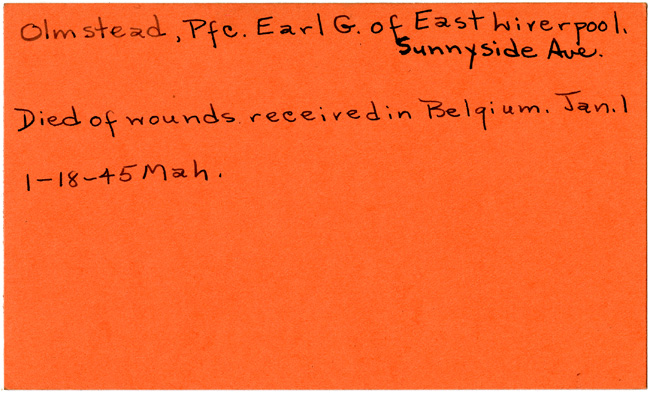 Olmstead, Pfc. Earl G. of East Liverpool.
Sunnyside Ave.
Died of wounds received in Belgium. Jan. 1
1-18-45 Mah.